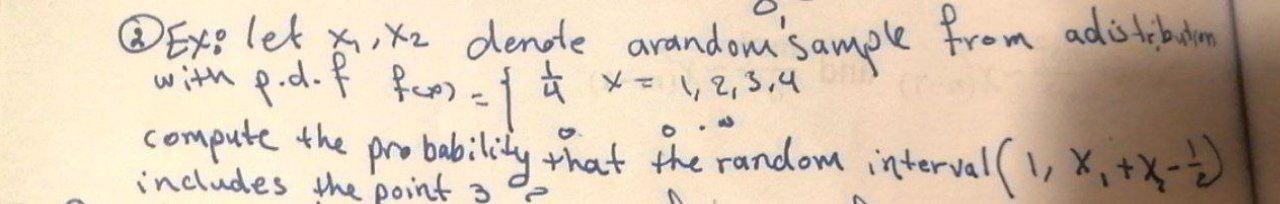 ② Ex: let x₁, x₂ denote arandom sample from adistribution
with p.d.f f(x) = { 1/4 x = 1, 2, 3, 4
0 0.w
compute the probability that the random interval (1, X₁ + X₂ - 1/2)
includes the point 3 ?